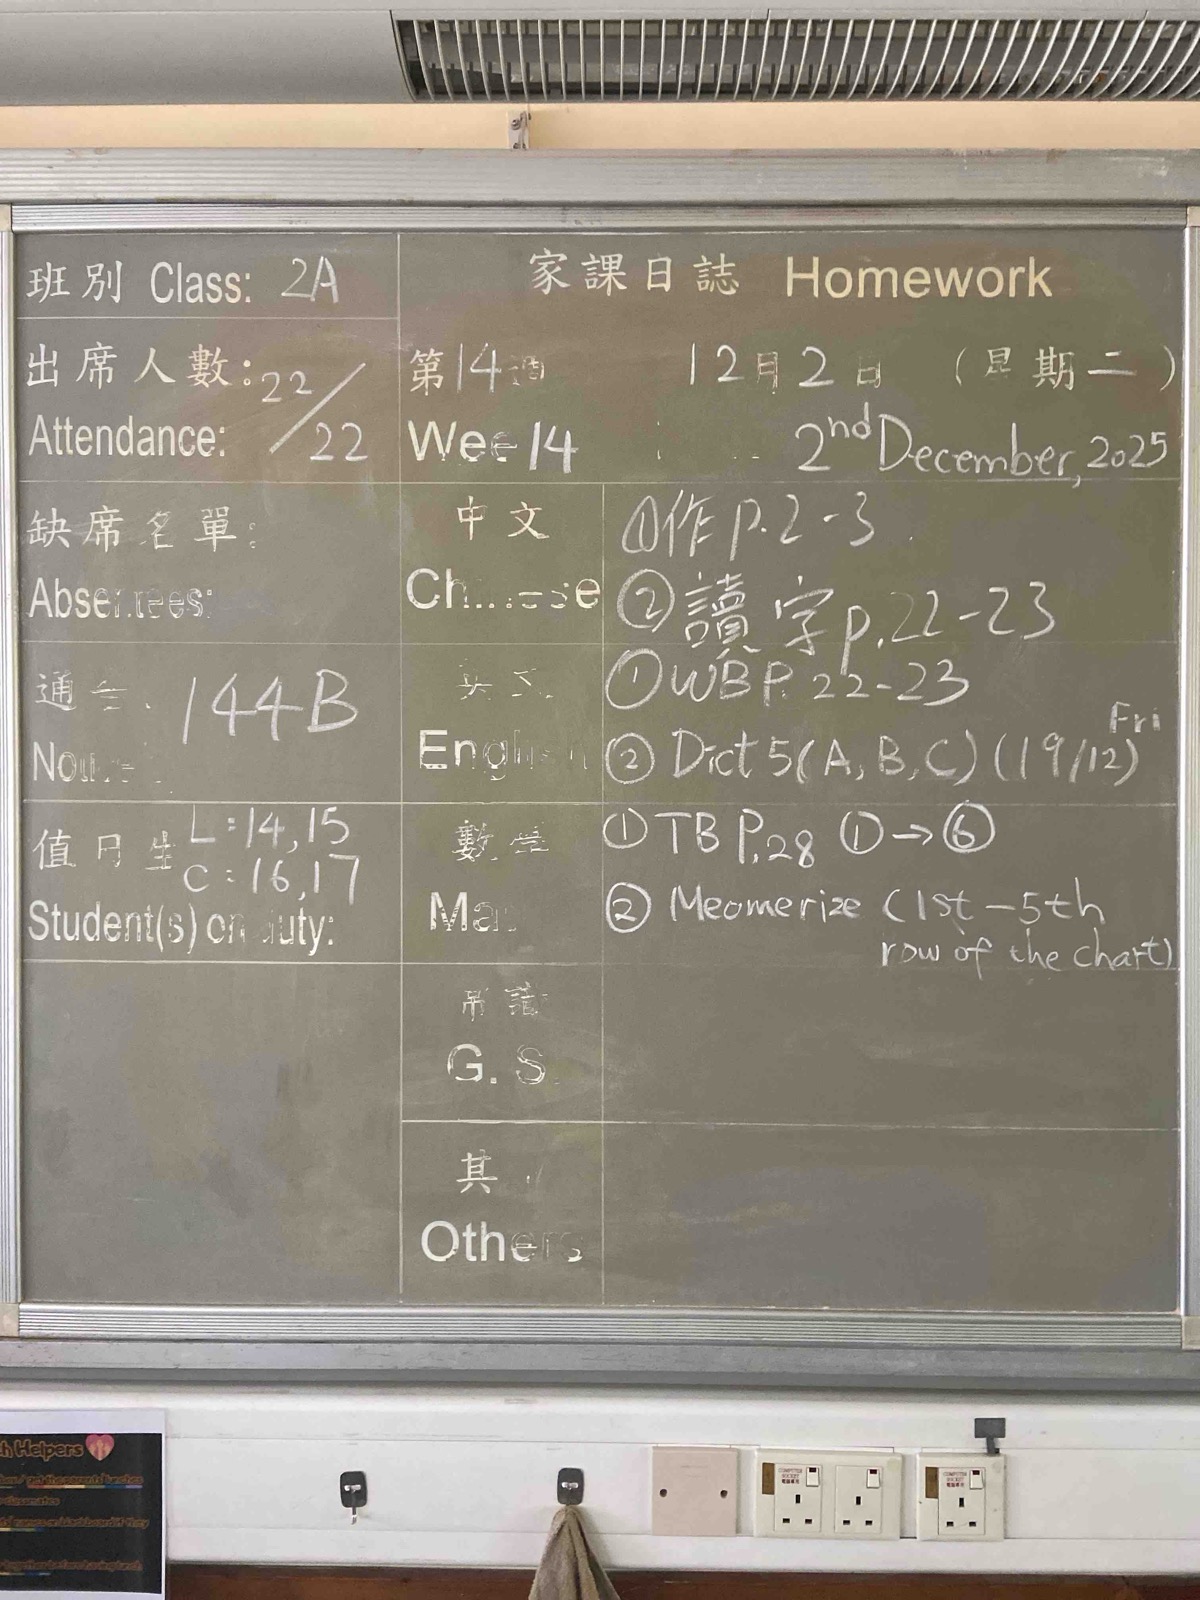 班別 Class: 2A
出席人數: 22/22
Attendance:
缺席名單:
Absentees:
通告 144B
值日生 L:14,15
C:16,17
Student(s) on duty:
家課日誌 Homework
第14週 12月2日 (星期二)
Wee 14 2nd December, 2025
中文
Chinese
①作 p.2-3
②讀字 p.22-23
英文
English
①WB P. 22-23
② Dict 5(A, B, C) (19/12) Fri
數學
Ma
① TB P.28 ①→⑥
② Meomerize (1st-5th
row of the chart)
G. S.
其
Others
h Helpers
classmates
COMPUTER SOCKET
COMPUTER SOCKET